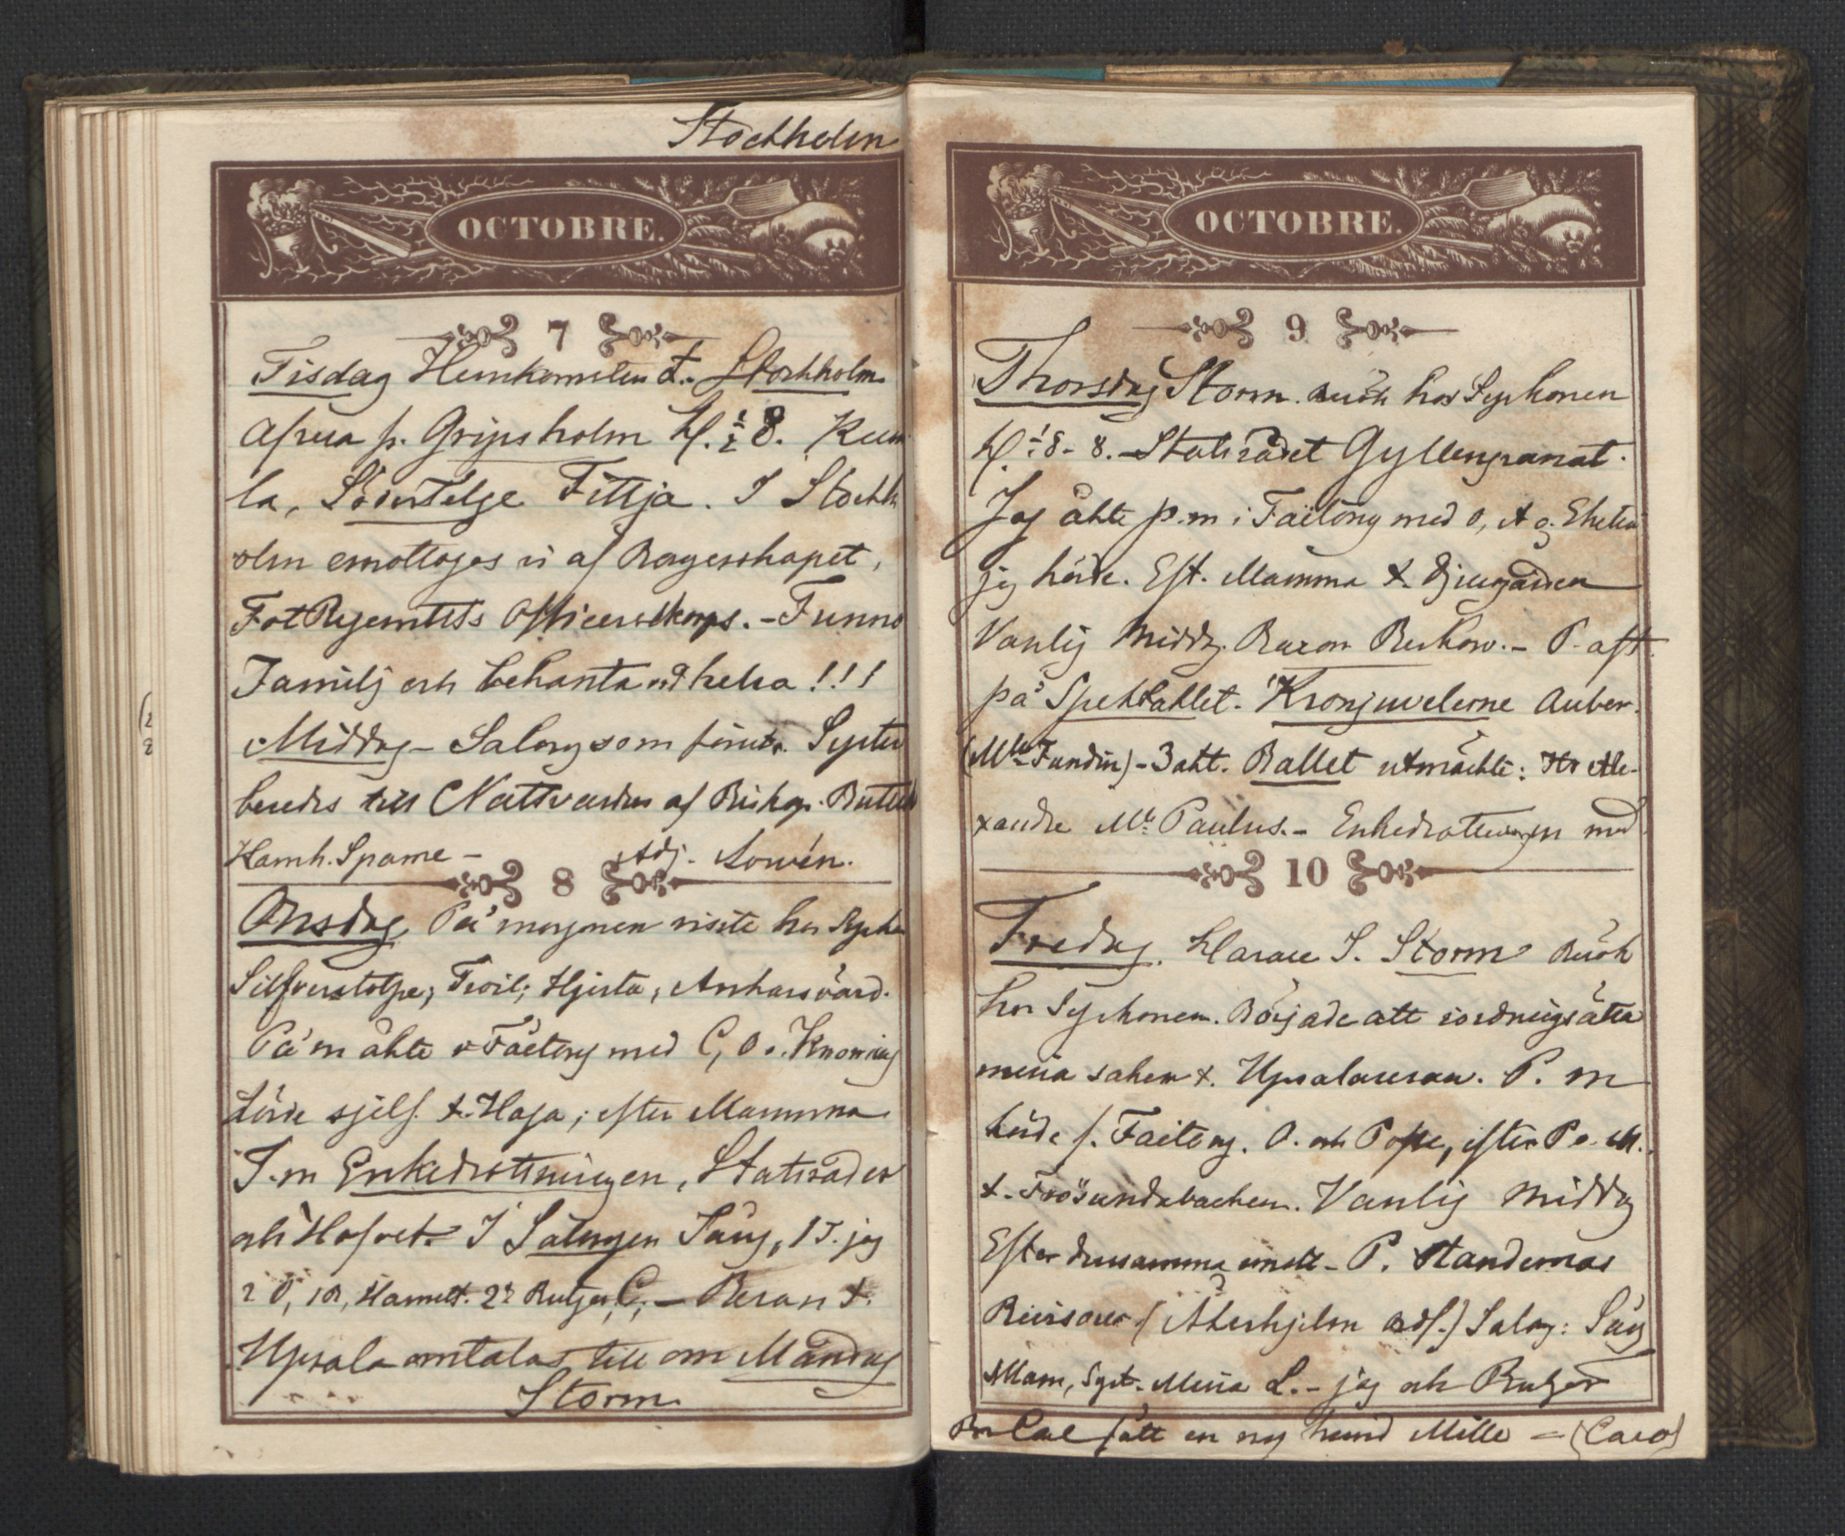 Stockholm
OCTOBRE.
7
Tisdag Hemkomsten t. Stockholm
Afresa fr. Gripsholm kl. ½ 8. Kum
la, Södertelge Fittja. I Stockh
olm emottogos vi af Borgerskapet,
Fot Regemtets Officerskorps. - Funno
Familj och bekanta vid helsa!!!
Middag - Salong som förut. Syster
beredes till Nattvarden af Biskop
Hamh. Spame - Adj. Lovén.
8
Onsdag På morgonen visite hos
Silfverstolpe; Troil; Hjerta; Ankarsvärd.
På m åkte i Faeton med C, O o.
körde sjelf t. Haga; efter Mamma
T.m Enkedrottningen, Statsråder
och Hofvet. I Salongen Sång, 1 T. jag
2 O, Hamilt. 2 Rutger C, - Resan t.
Upsala omtalas till om Måndag
Storm.
OCTOBRE.
9
Thorsdag Storm. Besök hos Sychonen
kl. ½ 8 - 8. - Statsrådet Gyllengranat.
Jag åkte p.m i Faetong med O, A o.
jag körde. Eft. Mamma t. Djurgården
Vanlig Middg. Baron Beskow. - P. aft.
på Spektaklet. Kronjuvelerne Auber.
(Mlle Fundin) - 3 akt. Ballet utmärkte: Hr Ale-
xandre Mll Paulus. - Enkedrottningen med
10
Fredag. Klarare S. Storm Besök
hos Sychonen. Började att iordningsätta
mina saker t. Upsalaresan. P. m
körde f. Faetong. O. och Pope, efter P o. M.
t. Frösundabacken. Vanlig Middag
Efter densamma emott. P. Standernas
Revisorer (Åkerhjelm ordf.) Salong: Sång
Mam, Syst. Mina L. - jag och Rutger
Carl fått en ny hund Mille = (Caro)